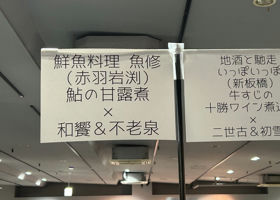 鮮魚料理 魚修
(赤羽岩渕)
鮎の甘露煮
×
和饗＆不老泉
地酒と馳走
いっぽいっぽ
(新板橋)
牛すじの
十勝ワイン煮込
×
二世古＆初雪